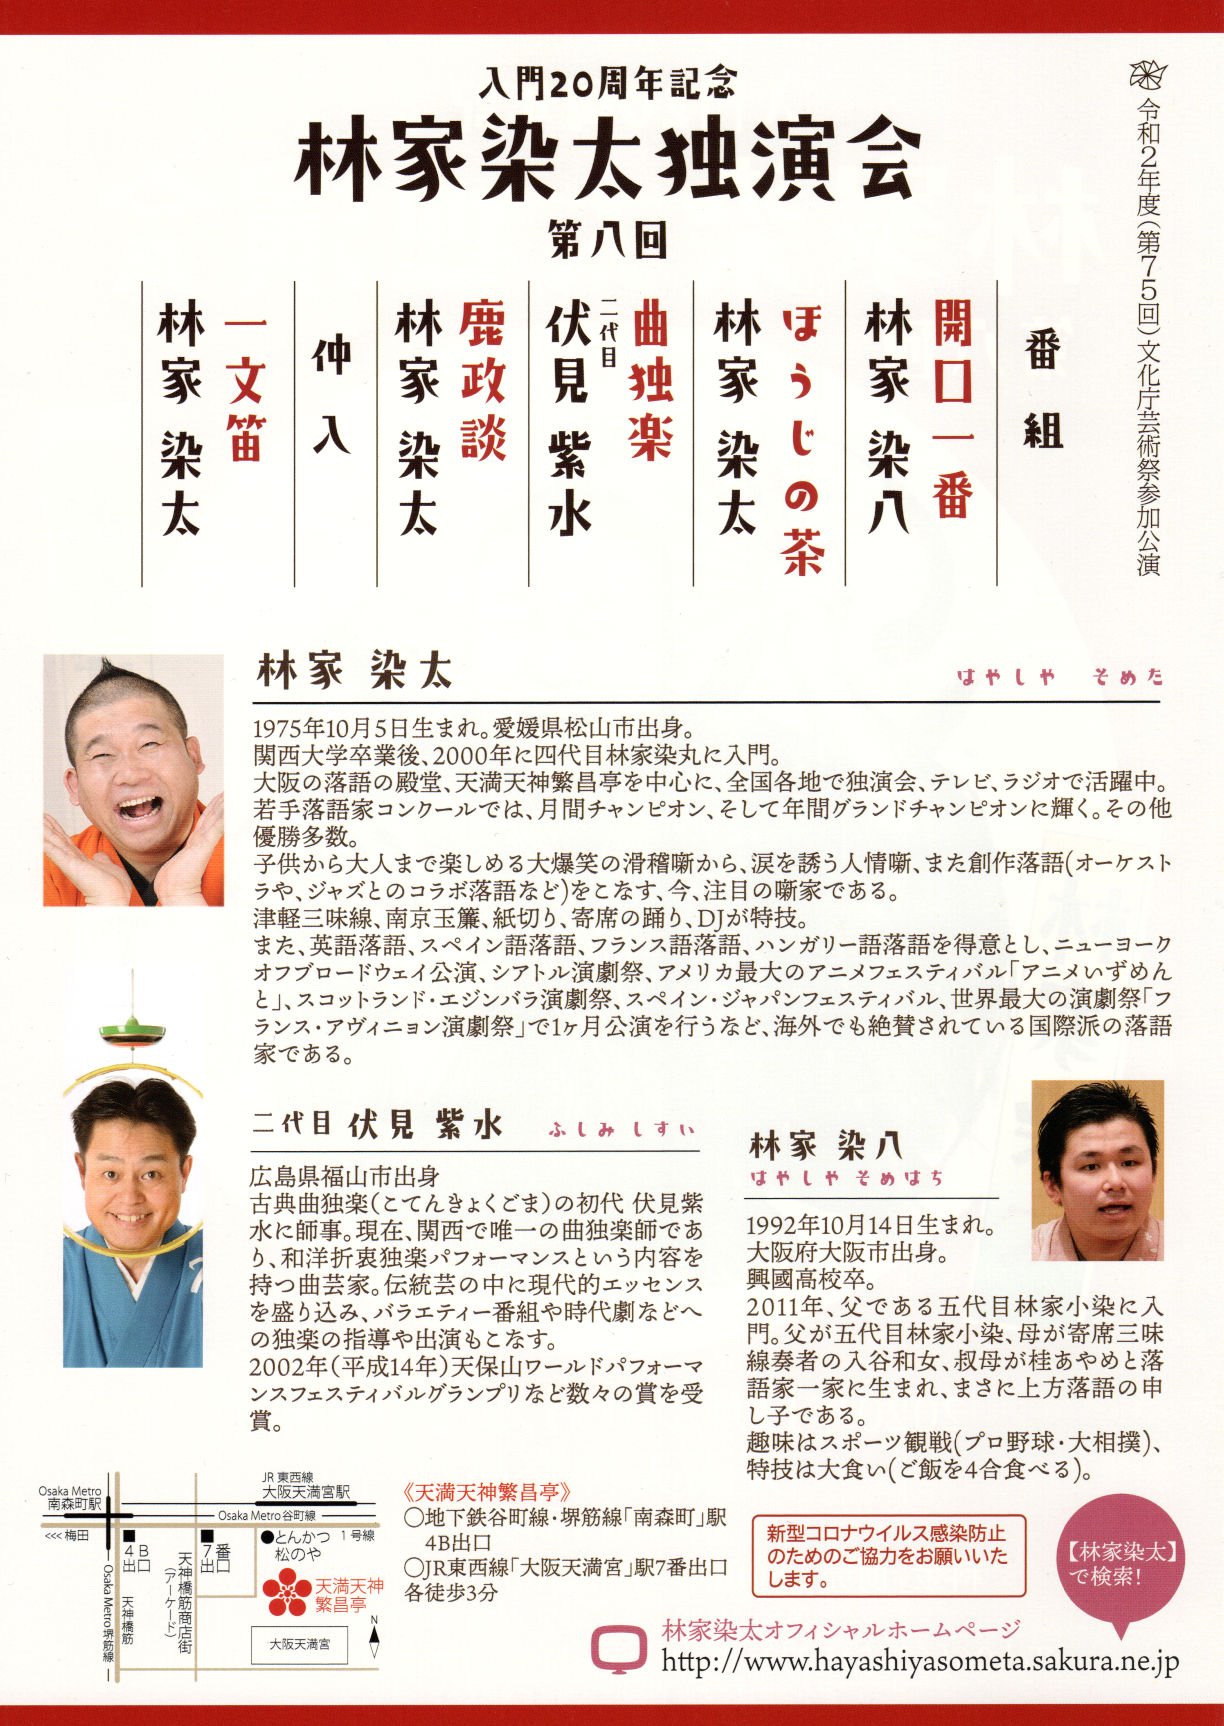 入門20周年記念
林家染太独演会
第八回
令和2年度(第75回)文化庁芸術祭参加公演
番組
開口一番
林家 染八
ほうじの茶
林家 染太
曲独楽
二代目
伏見 紫水
鹿政談
林家 染太
仲入
一文笛
林家 染太
林家 染太
はやしや そめた
1975年10月5日生まれ。愛媛県松山市出身。
関西大学卒業後、2000年に四代目林家染丸に入門。
大阪の落語の殿堂、天満天神繁昌亭を中心に、全国各地で独演会、テレビ、ラジオで活躍中。
若手落語家コンクールでは、月間チャンピオン、そして年間グランドチャンピオンに輝く。その他
優勝多数。
子供から大人まで楽しめる大爆笑の滑稽噺から、涙を誘う人情噺、また創作落語(オーケスト
ラや、ジャズとのコラボ落語など)をこなす、今、注目の噺家である。
津軽三味線、南京玉簾、紙切り、寄席の踊り、DJが特技。
また、英語落語、スペイン語落語、フランス語落語、ハンガリー語落語を得意とし、ニューヨーク
オフブロードウェイ公演、シアトル演劇祭、アメリカ最大のアニメフェスティバル「アニメいずめん
と」、スコットランド・エジンバラ演劇祭、スペイン・ジャパンフェスティバル、世界最大の演劇祭「フ
ランス・アヴィニョン演劇祭」で1ヶ月公演を行うなど、海外でも絶賛されている国際派の落語
家である。
二代目 伏見 紫水
ふしみ しすい
広島県福山市出身
古典曲独楽(こてんきょくごま)の初代 伏見紫
水に師事。現在、関西で唯一の曲独楽師であ
り、和洋折衷独楽パフォーマンスという内容を
持つ曲芸家。伝統芸の中に現代的エッセンス
を盛り込み、バラエティー番組や時代劇などへ
の独楽の指導や出演もこなす。
2002年(平成14年)天保山ワールドパフォーマ
ンスフェスティバルグランプリなど数々の賞を受
賞。
林家 染八
はやしや そめはち
1992年10月14日生まれ。
大阪府大阪市出身。
興國高校卒。
2011年、父である五代目林家小染に入
門。父が五代目林家小染、母が寄席三味
線奏者の入谷和女、叔母が桂あやめと落
語家一家に生まれ、まさに上方落語の申
し子である。
趣味はスポーツ観戦(プロ野球・大相撲)、
特技は大食い(ご飯を4合食べる)。
Osaka Metro
南森町駅
JR東西線
大阪天満宮駅
Osaka Metro谷町線
<<<梅田
4B出口
7番出口
とんかつ
松のや
1号線
天満天神
繁昌亭
Osaka Metro堺筋線
天神橋筋
天神橋筋商店街
(アーケード)
大阪天満宮
N
《天満天神繁昌亭》
○地下鉄谷町線・堺筋線「南森町」駅
4B出口
○JR東西線「大阪天満宮」駅7番出口
各徒歩3分
新型コロナウイルス感染防止
のためのご協力をお願いいた
します。
【林家染太】
で検索!
林家染太オフィシャルホームページ
http://www.hayashiyasometa.sakura.ne.jp